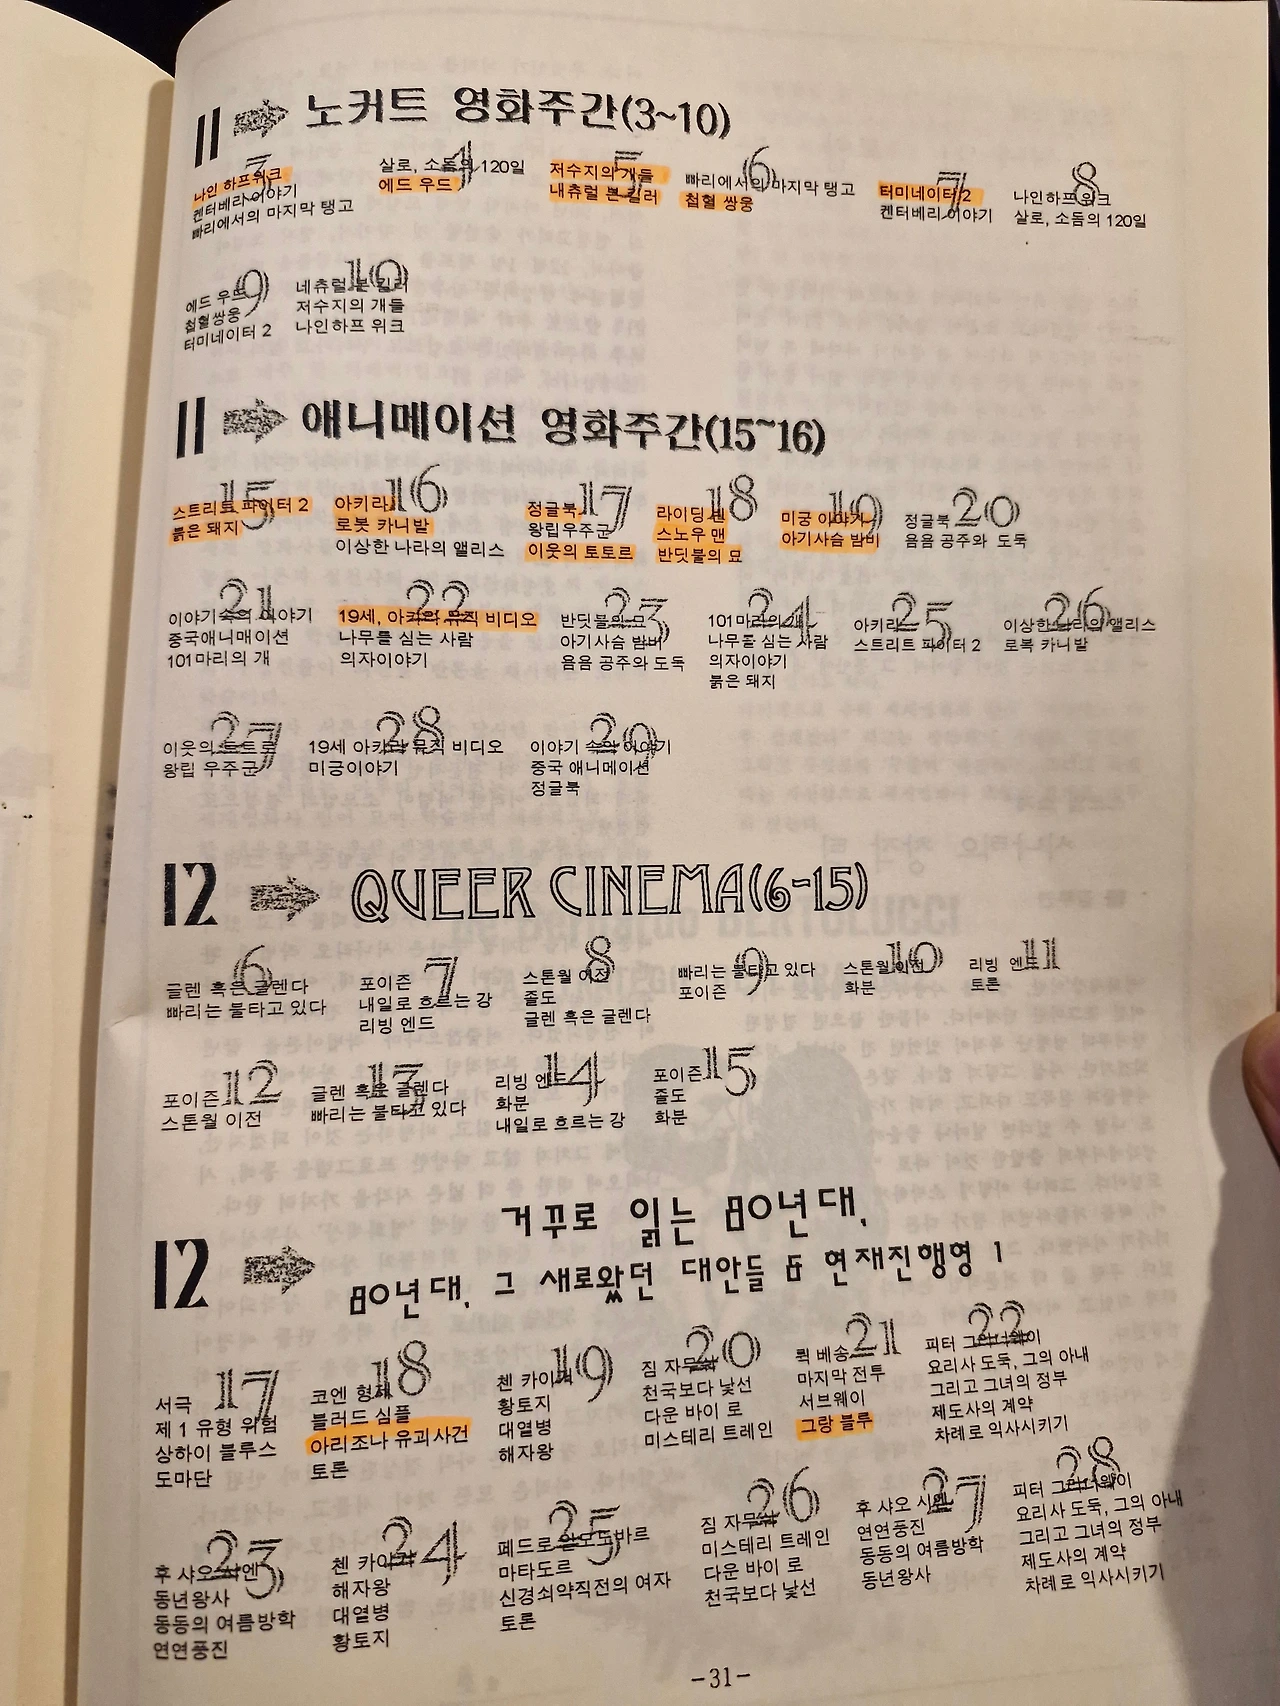 11 노커트 영화주간(3~10)
3
나인 하프위크
켄터베라 이야기
빠리에서의 마지막 탱고
4
살로, 소돔의 120일
에드 우드
5
저수지의 개들
내츄럴 본 킬러
6
빠리에서의 마지막 탱고
첩혈 쌍웅
7
터미네이터2
켄터베리 이야기
8
나인하프 위크
살로, 소돔의 120일
9
에드 우드
첩혈쌍웅
터미네이터 2
10
네츄럴 본 킬러
저수지의 개들
나인하프 위크
11 애니메이션 영화주간(15~16)
15
스트리트 파이터 2
붉은 돼지
16
아키라
로봇 카니발
이상한 나라의 앨리스
17
정글북
왕립우주군
이웃의 토토르
18
라이딩 빈
스노우 맨
반딧불의 묘
19
미궁 이야기
아기사슴 밤비
20
정글북
음음 공주와 도둑
21
이야기 속의 이야기
중국애니매이션
101마리의 개
22
19세, 아키라 뮤직 비디오
나무를 심는 사람
의자이야기
23
반딧불의 묘
아기사슴 밤비
음음 공주와 도둑
24
101마리의 개
나무를 심는 사람
의자이야기
붉은 돼지
25
아키라
스트리트 파이터 2
26
이상한 나라의 앨리스
로복 카니발
27
이웃의 토트로
왕립 우주군
28
19세 아키라 뮤직 비디오
미궁이야기
29
이야기 속의 이야기
중국 애니메이션
정글북
12 QUEER CINEMA(6-15)
6
글렌 혹은 글렌다
빠리는 불타고 있다
7
포이즌
내일로 흐르는 강
리빙 엔드
8
스톤월 이전
졸도
글렌 혹은 글렌다
9
빠리는 불타고 있다
포이즌
10
스톤월 이전
화분
11
리빙 엔드
토론
12
포이즌
스톤월 이전
13
글렌 혹은 글렌다
빠리는 불타고 있다
14
리빙 엔드
화분
내일로 흐르는 강
15
포이즌
졸도
화분
거꾸로 읽는 80년대,
12 80년대, 그 새로왔던 대안들 & 현재진행형 1
17
서극
제 1 유형 위험
상하이 블루스
도마단
18
코엔 형제
블러드 심플
아리조나 유괴사건
토론
19
첸 카이거
황토지
대열병
해자왕
20
짐 자무쉬
천국보다 낯선
다운 바이 로
미스테리 트레인
21
뤽 베송
마지막 전투
서브웨이
그랑 블루
22
피터 그리너웨이
요리사 도둑, 그의 아내
그리고 그녀의 정부
제도사의 계약
차례로 익사시키기
23
후 샤오 시엔
동년왕사
동동의 여름방학
연연풍진
24
첸 카이거
해자왕
대열병
황토지
25
페드로 알모도바르
마타도르
신경쇠약직전의 여자
토론
26
짐 자무쉬
미스테리 트레인
다운 바이 로
천국보다 낯선
27
후 샤오 시엔
연연풍진
동동의 여름방학
동년왕사
28
피터 그리너웨이
요리사 도둑, 그의 아내
그리고 그녀의 정부
제도사의 계약
차례로 익사시키기
-31-